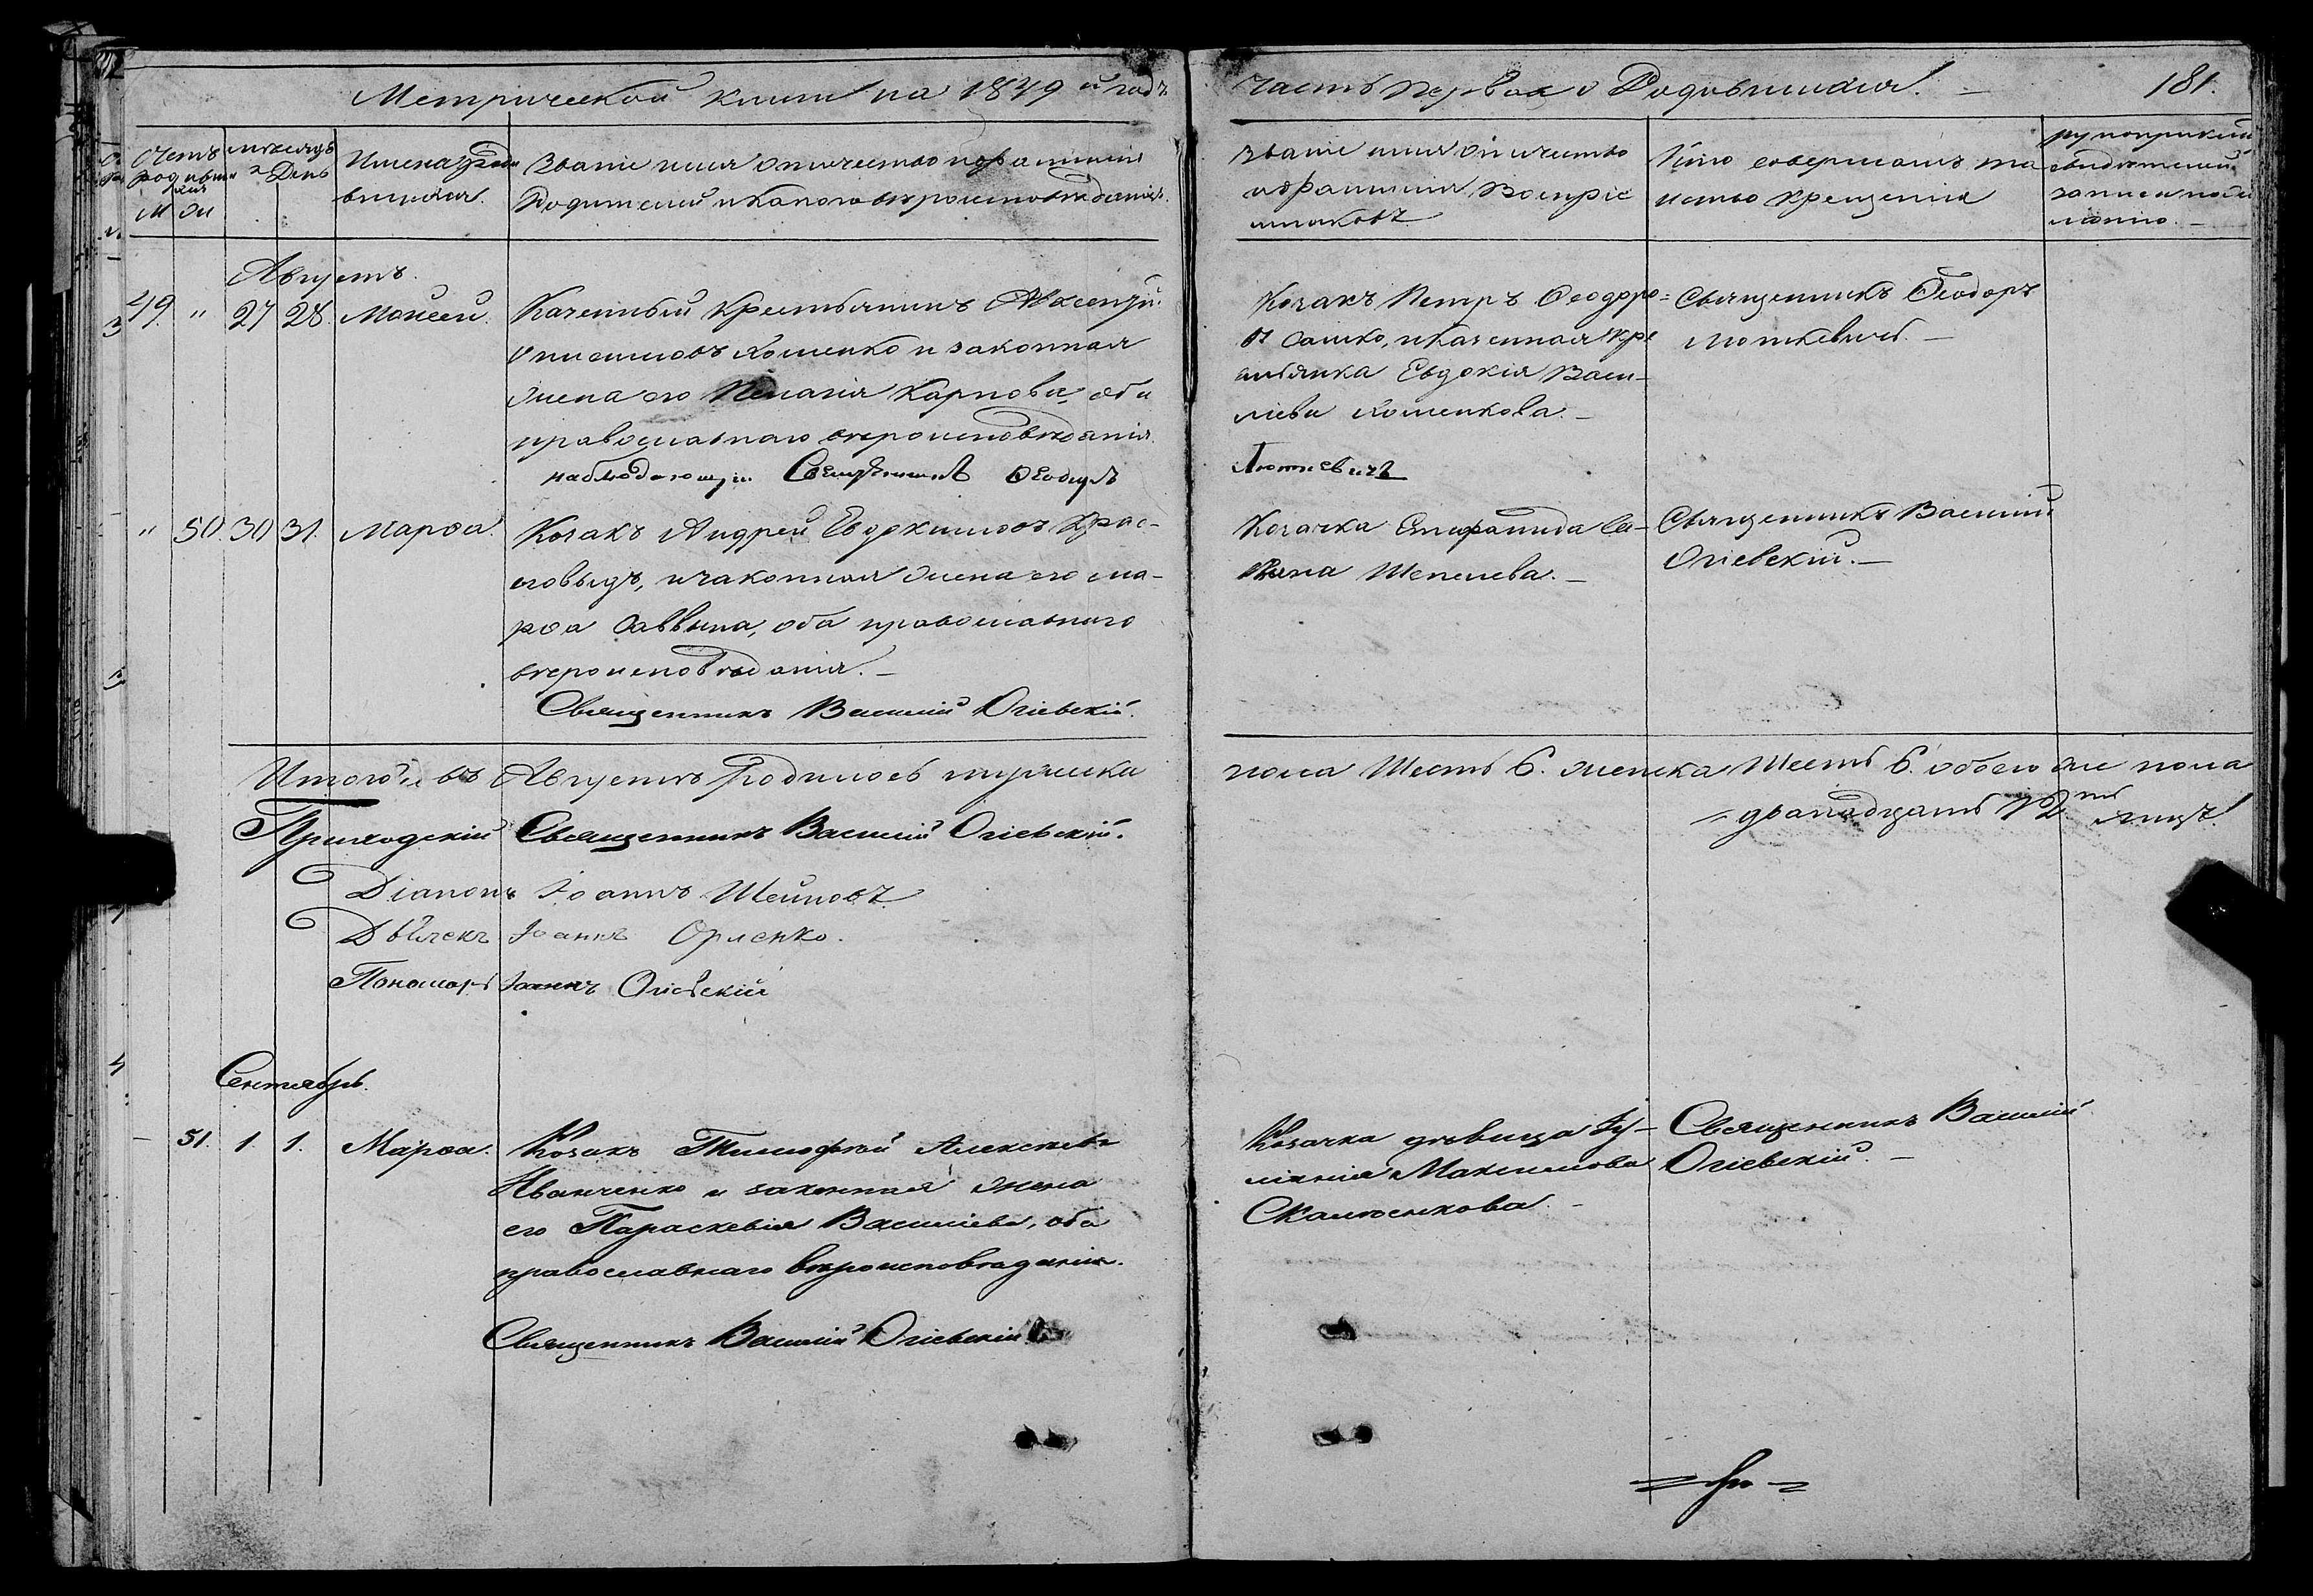 Метрической книги на 1849й годъ
Часть первая о Родившихся.
181.
Счетъ родившихся
М Ж
мѣсяцъ и День
Имена родившихся.
Званіе имя отчество и фамилія
Родителей и какого вѣроисповѣданія.
Званіе имя отчество
и фамилія Воспріе
мниковъ
Кто совершалъ та
инство Крещенія
рукоприкла
свидѣтелей
записи по же
ланію.
Августъ.
49. " 27 28 Моисей.
Казенный Крестьянинъ Авксентій
Онисимовъ Коменко и законная
жена его Пелагія Карпова, оба
православнаго вѣроисповѣданія.
наблюдающій Священникъ Ѳеодоръ
Козакъ Петръ Ѳеодоро=
въ Сашко, и казенная кре
стьянка Евдокія Васи-
ліева Коменкова.
Люткевичъ
Священникъ Ѳеодоръ
Люткевичъ.
" 50. 30 31. Марѳа.
Козакъ Андрей Евдокимовъ Крас-
новыдъ, и законная жена его Ма-
рѳа Саввина, оба православнаго
вѣроисповѣданія.
Священникъ Василій Огіевскій.
Козачка Епифанида Са-
ввина Шепелева.
Священникъ Василій
Огіевскій.
Итого въ Августѣ родилось мужеска
пола Шесть 6. женска Шесть 6. обоего же пола
двѣнадцать 12ть лицъ.
Приходскій Священникъ Василій Огіевскій.
Діаконъ Іоаннъ Шеиновъ
Дьячекъ Іоаннъ Орленко.
Пономарь Іоаннъ Огіевскій
Сентябрь.
51. 1. 1. Марѳа.
Козакъ Тимофѣй Алексѣевъ
Иванченко и законная жена
его Параскевія Василіева, оба
православнаго вѣроисповѣданія.
Священникъ Василій Огіевскій
Козачка дѣвица Іу-
ліянія Максимова
Скаженкова.
Священникъ Василій
Огіевскій.